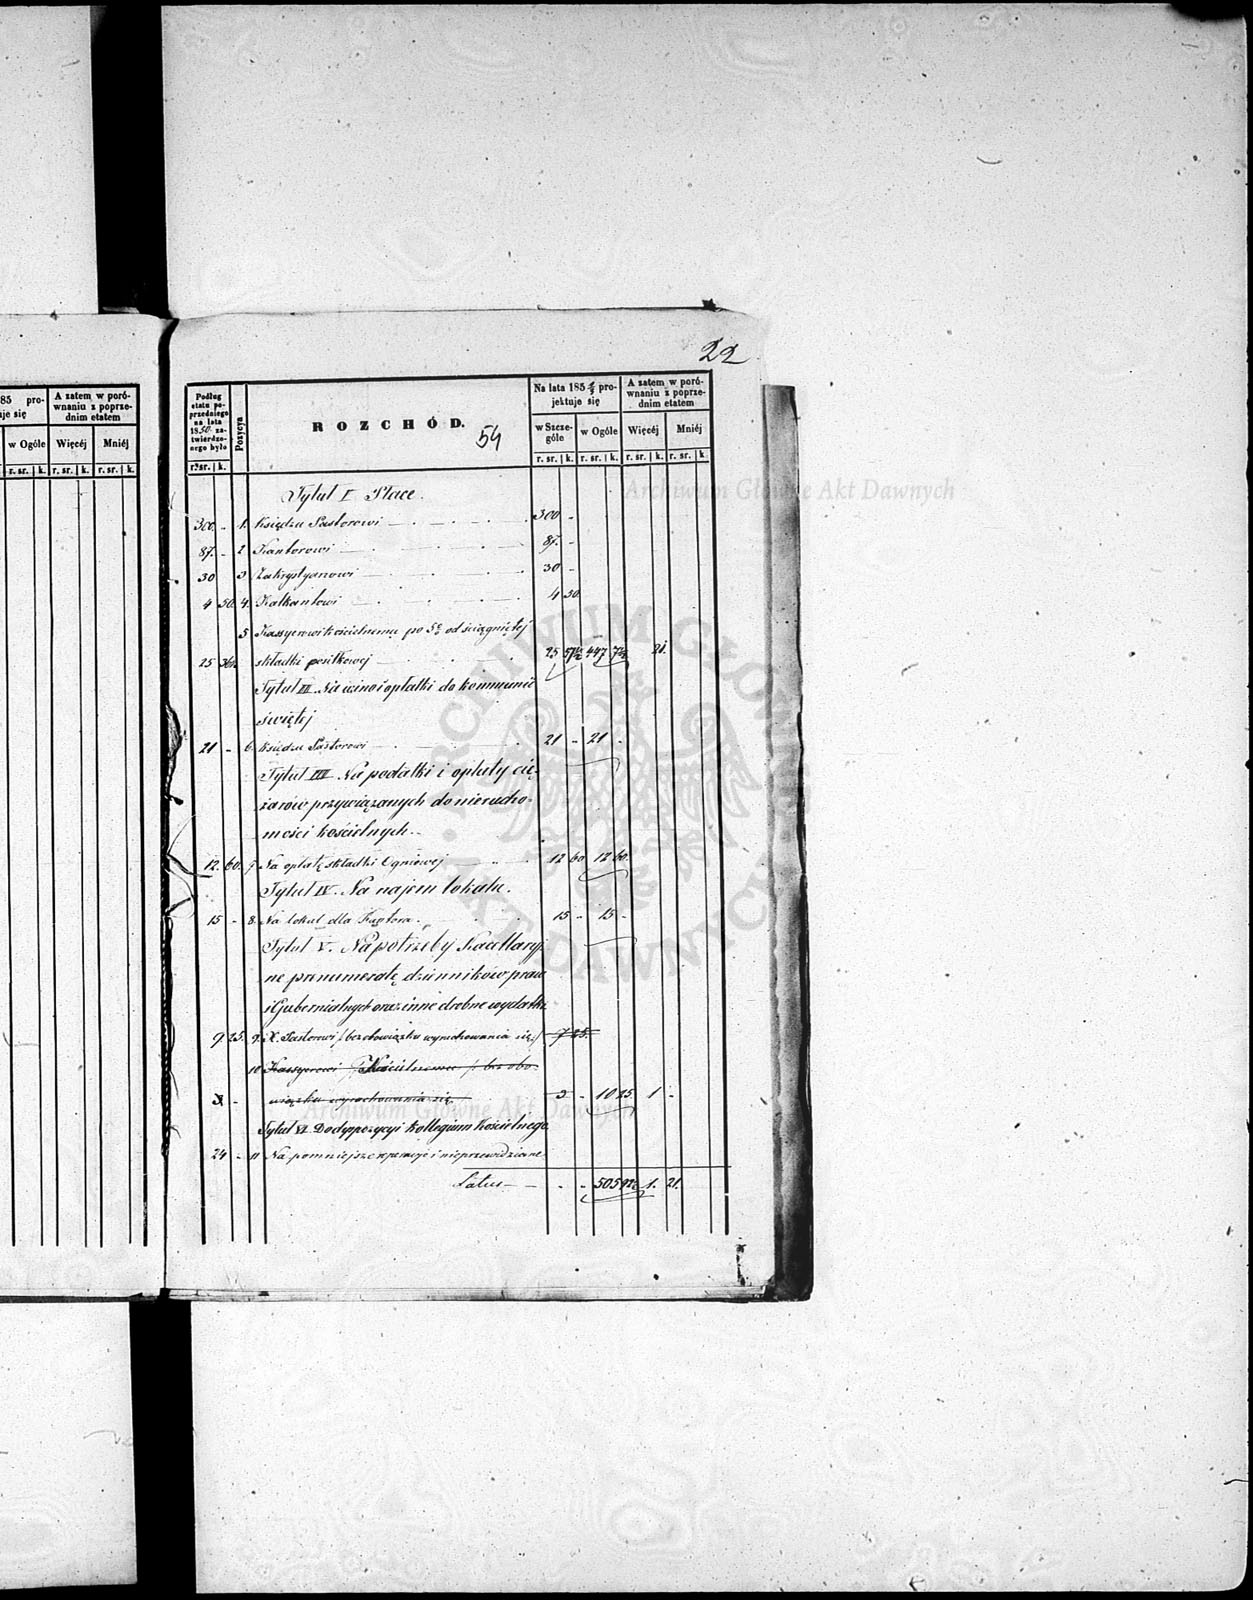 22
85 pro-
je się
A zatem w poró-
wnaniu z poprze-
dnim etatem
w Ogóle Więcéj Mniéj
r. sr. k. r. sr. k. r. sr. k.
Podług
etatu po-
przedniego
na lata
1850 za-
twierdzo-
nego było
r. sr. k.
Pozycya
ROZCHÓD.
54
Na lata 185 pro-
jektuje się
A zatem w poró-
wnaniu z poprze-
dnim etatem
w Szcze-
góle
w Ogóle Więcéj Mniéj
r. sr. k. r. sr. k. r. sr. k. r. sr. k.
Tytuł I Płace.
300 - 1. Księdzu Pastorowi 300 -
87. - 2 Kantorowi 87. -
30 3 Zakrystyanowi 30 -
4 50. 4. Kalkantowi 4 50.
5 Kassyerowi kościelnemu po 5% od ściągniętej
25 36½ składki posiłkowej 25 57½ 447 7½ 21.
Tytuł II Na wino i opłatki do kommunii
świętej
21 - 6. Księdzu Pastorowi 21 - 21 -
Tytuł III Na podatki i opłaty cię-
żarów przywiązanych do nierucho-
mości kościelnych.
12. 60. 7 Na opłatę składki Ogniowej 12 60 12 60.
Tytuł IV. Na najem lokalu.
15 - 8. Na lokal dla Kantora. 15 - 15 -
Tytuł V. Na potrzeby Kancellaryj-
ne prenumeratę dzienników praw
i Gubernialnych oraz inne drobne wydatki
9 25. 9. X. Pastorowi /bez obowiązku wyrachowania się/ 7 25.
10 Kassyerowi Kościelnemu /bez obo-
3 - wiązku wyrachowania się 3 - 10 25. 1 -
Tytuł VI Do dyspozycyi Kollegium Kościelnego
24 - 11 Na pomniejsze reperacye i nieprzewidziane
Latus - - 505 92½ 1. 21.
Archiwum Główne Akt Dawnych
Archiwum Główne Akt Dawnych
ARCHIWUM GŁÓWNE AKT DAWNYCH